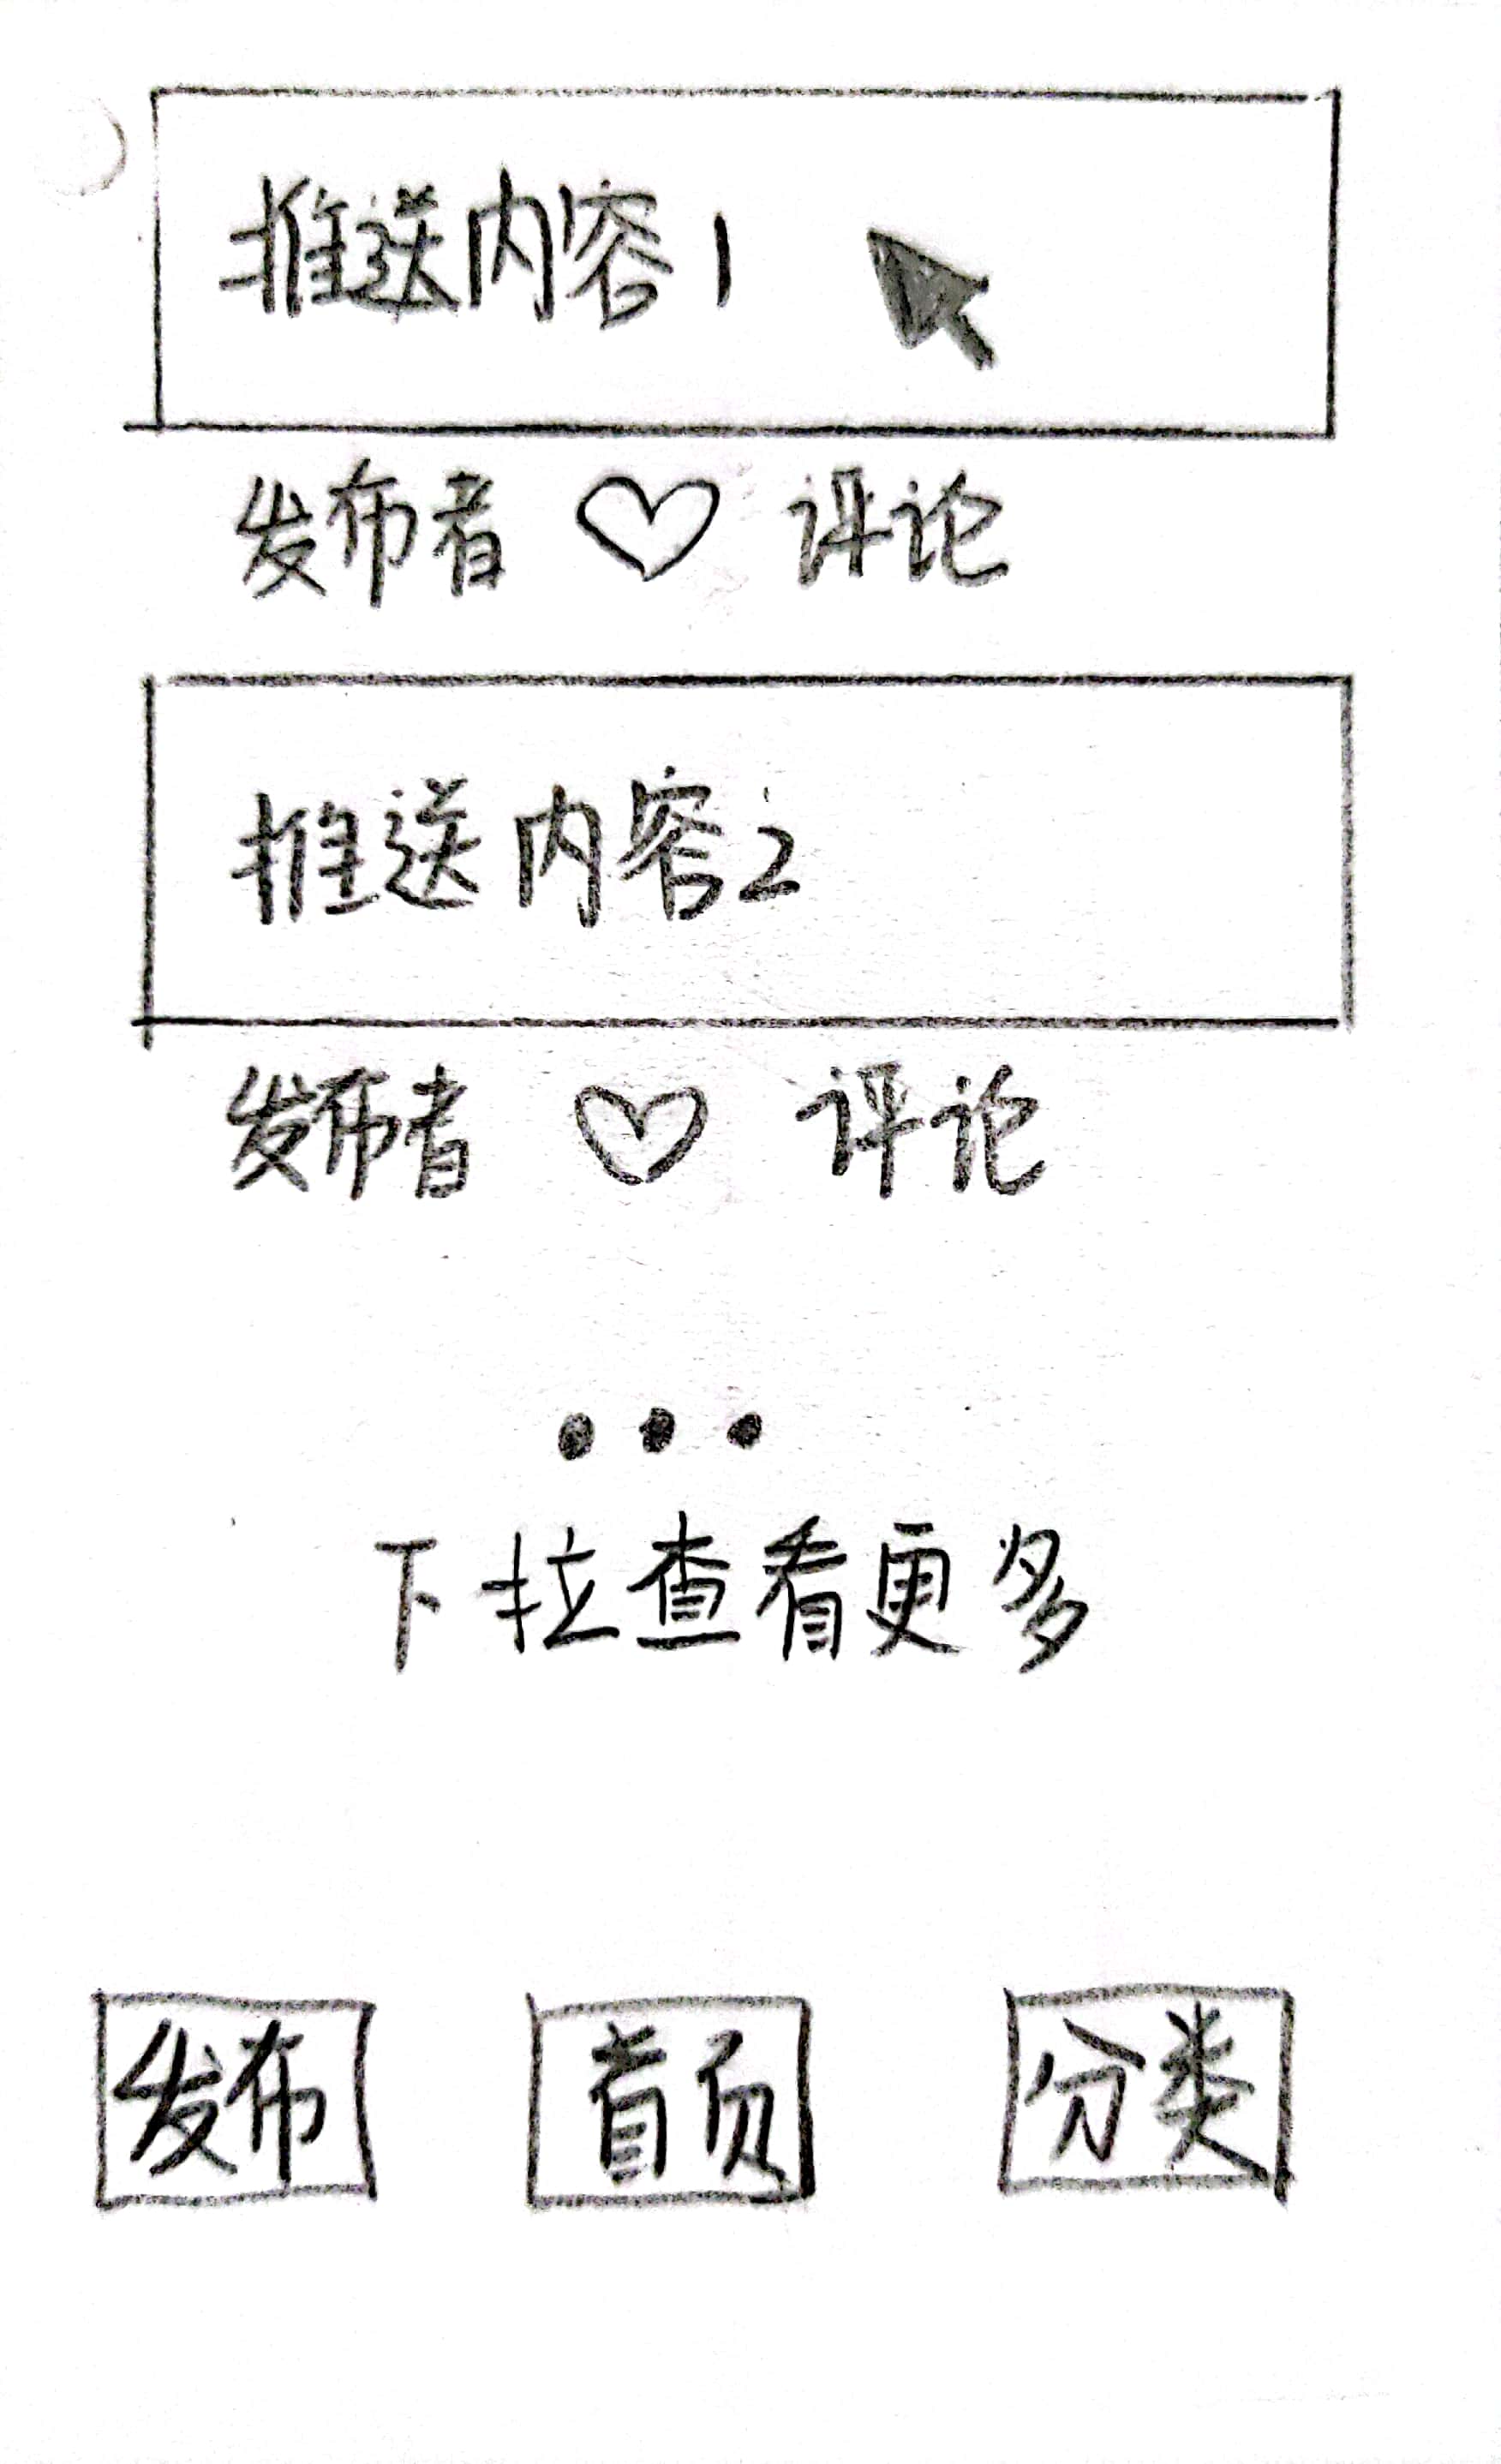 推送内容1
发布者 ♡ 评论
推送内容2
发布者 ♡ 评论
...
下拉查看更多
发布 首页 分类